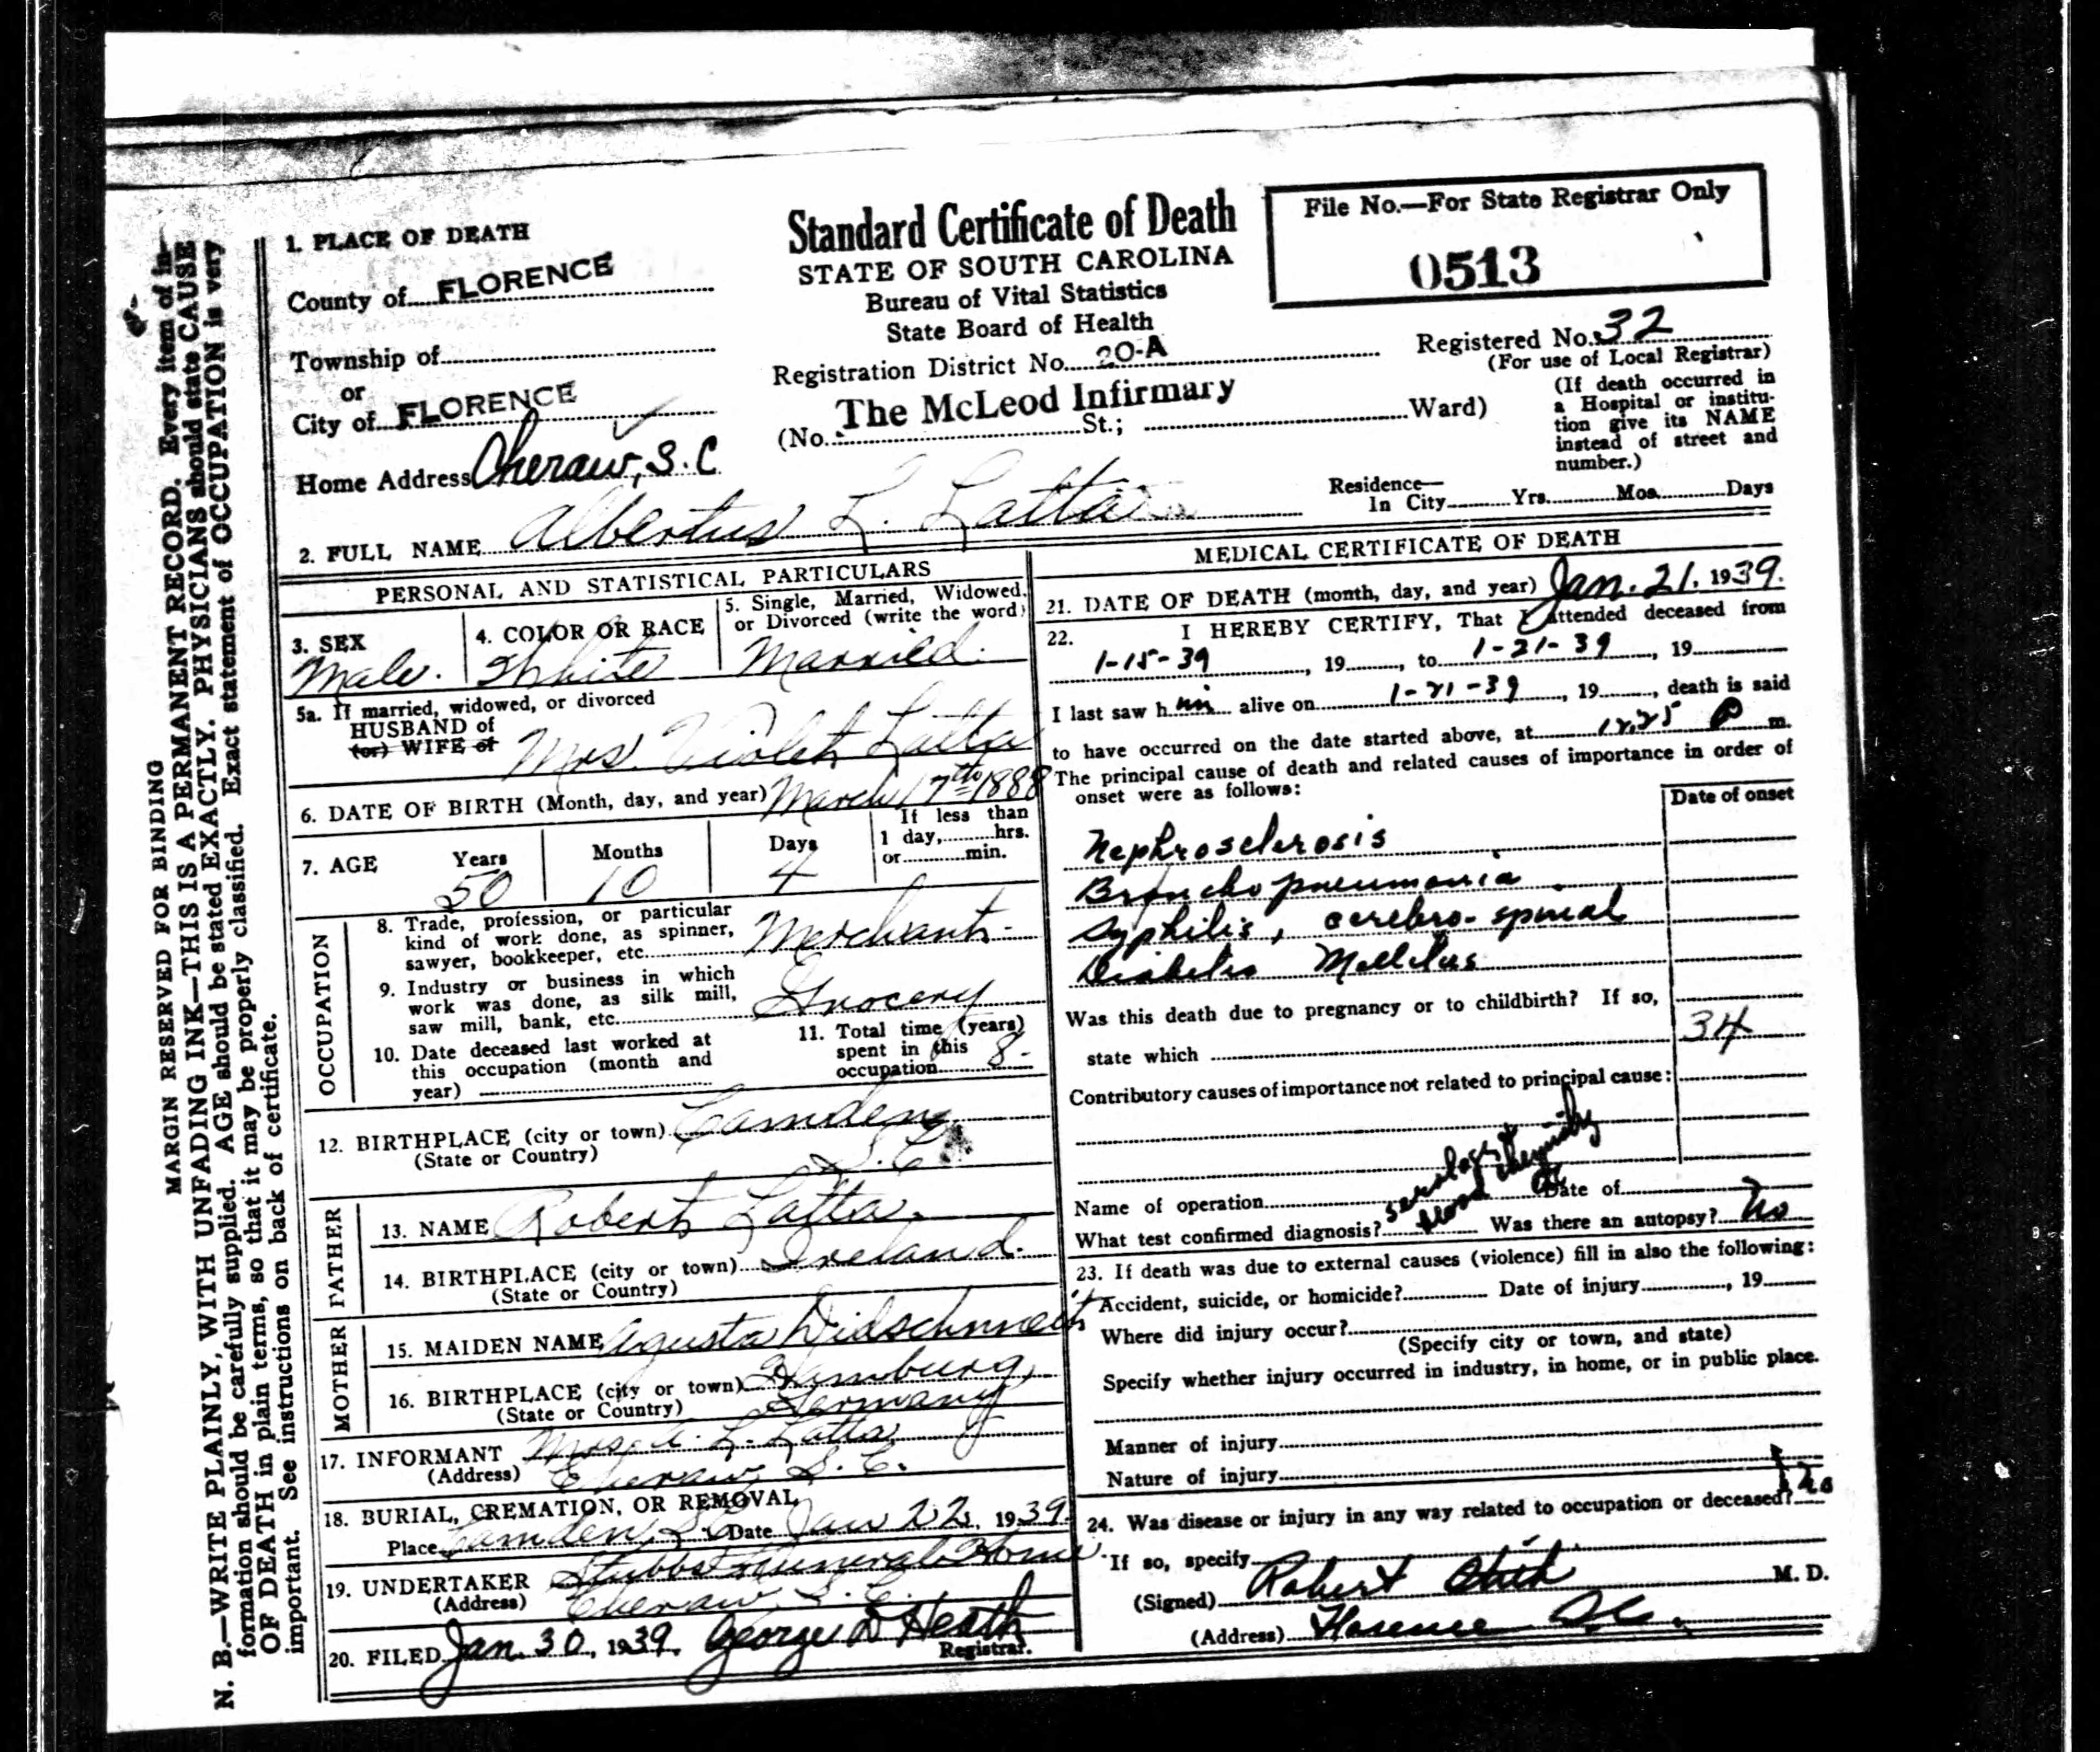 MARGIN RESERVED FOR BINDING
N. B.—WRITE PLAINLY, WITH UNFADING INK—THIS IS A PERMANENT RECORD. Every item of in-
formation should be carefully supplied. AGE should be stated EXACTLY. PHYSICIANS should state CAUSE
OF DEATH in plain terms, so that it may be properly classified. Exact statement of OCCUPATION is very
important. See instructions on back of certificate.
1. PLACE OF DEATH
County of FLORENCE
Township of
or
City of FLORENCE
Home Address Cheraw, S.C
Standard Certificate of Death
STATE OF SOUTH CAROLINA
Bureau of Vital Statistics
State Board of Health
Registration District No. 20-A
The McLeod Infirmary
(No. St.; Ward)
File No.—For State Registrar Only
0513
Registered No. 32
(For use of Local Registrar)
(If death occurred in
a Hospital or institu-
tion give its NAME
instead of street and
number.)
Residence—
In City Yrs. Mos. Days
2. FULL NAME Albertus L. Latta
PERSONAL AND STATISTICAL PARTICULARS
3. SEX
Male.
4. COLOR OR RACE
White
5. Single, Married, Widowed,
or Divorced (write the word)
Married.
5a. If married, widowed, or divorced
HUSBAND of
(or) WIFE of Mrs. Violet Latta
6. DATE OF BIRTH (Month, day, and year) March 17th 1888
7. AGE Years Months Days
50 10 4
If less than
1 day, hrs.
or min.
OCCUPATION
8. Trade, profession, or particular
kind of work done, as spinner,
sawyer, bookkeeper, etc. Merchant-
9. Industry or business in which
work was done, as silk mill,
saw mill, bank, etc. Grocery
10. Date deceased last worked at
this occupation (month and
year)
11. Total time (years)
spent in this
occupation 8-
12. BIRTHPLACE (city or town) Camden,
(State or Country) S.C.
FATHER
13. NAME Robert Latta.
14. BIRTHPLACE (city or town) Ireland.
(State or Country)
MOTHER
15. MAIDEN NAME Agusta
16. BIRTHPLACE (city or town) Hamburg,
(State or Country) Germany
17. INFORMANT Mrs. A. L. Latta
(Address) Cheraw, S. C.
18. BURIAL, CREMATION, OR REMOVAL
Place Camden, S.C. Date Jan 22, 1939.
19. UNDERTAKER Stubbs Funeral Home
(Address) Cheraw, S. C.
20. FILED Jan. 30, 1939. George D Heath
Registrar.
MEDICAL CERTIFICATE OF DEATH
21. DATE OF DEATH (month, day, and year) Jan. 21. 1939.
22. I HEREBY CERTIFY, That I attended deceased from
1-15-39, 19, to 1-21-39, 19
I last saw him alive on 1-21-39, 19, death is said
to have occurred on the date started above, at 12.25 P m.
The principal cause of death and related causes of importance in order of
onset were as follows:
Date of onset
Nephrosclerosis
Bronchopneumonia
Syphilis, cerebro-spinal
Diabetes Mellitus
Was this death due to pregnancy or to childbirth? If so,
state which
34
Contributory causes of importance not related to principal cause:
Name of operation Date of
What test confirmed diagnosis? serology & blood chemistry Was there an autopsy? No
23. If death was due to external causes (violence) fill in also the following:
Accident, suicide, or homicide? Date of injury, 19
Where did injury occur?
(Specify city or town, and state)
Specify whether injury occurred in industry, in home, or in public place.
Manner of injury
Nature of injury
24. Was disease or injury in any way related to occupation or deceased? No
If so, specify
(Signed) Robert M. D.
(Address) Florence S.C.